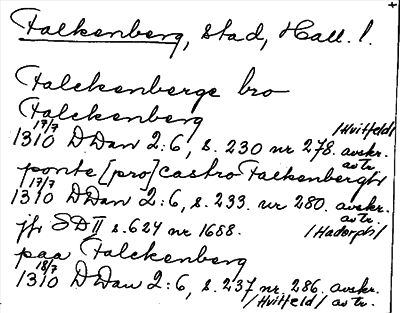 Falkenberg, stad, Hall. l.
Falckenberge bro
Falckenberg
17/7 /Hvitfeld/
1310 DDan 2:6, s. 230 nr 278. avskr. av tr.
ponte [pro] castro Falkenbergh
17/7
1310 DDan 2:6, s. 233. nr 280. avskr. av tr.
jfr SD II s. 624 nr 1688. /Hadorph/
paa Falckenberg
18/7
1310 DDan 2:6, s. 237 nr. 286. avskr.
/Hvitfeld/ av tr.